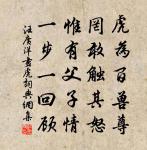 虎為百獸尊
罔敢觸其怒
惟有父子情
一步一回顧
汪廣洋畫虎詞典網集